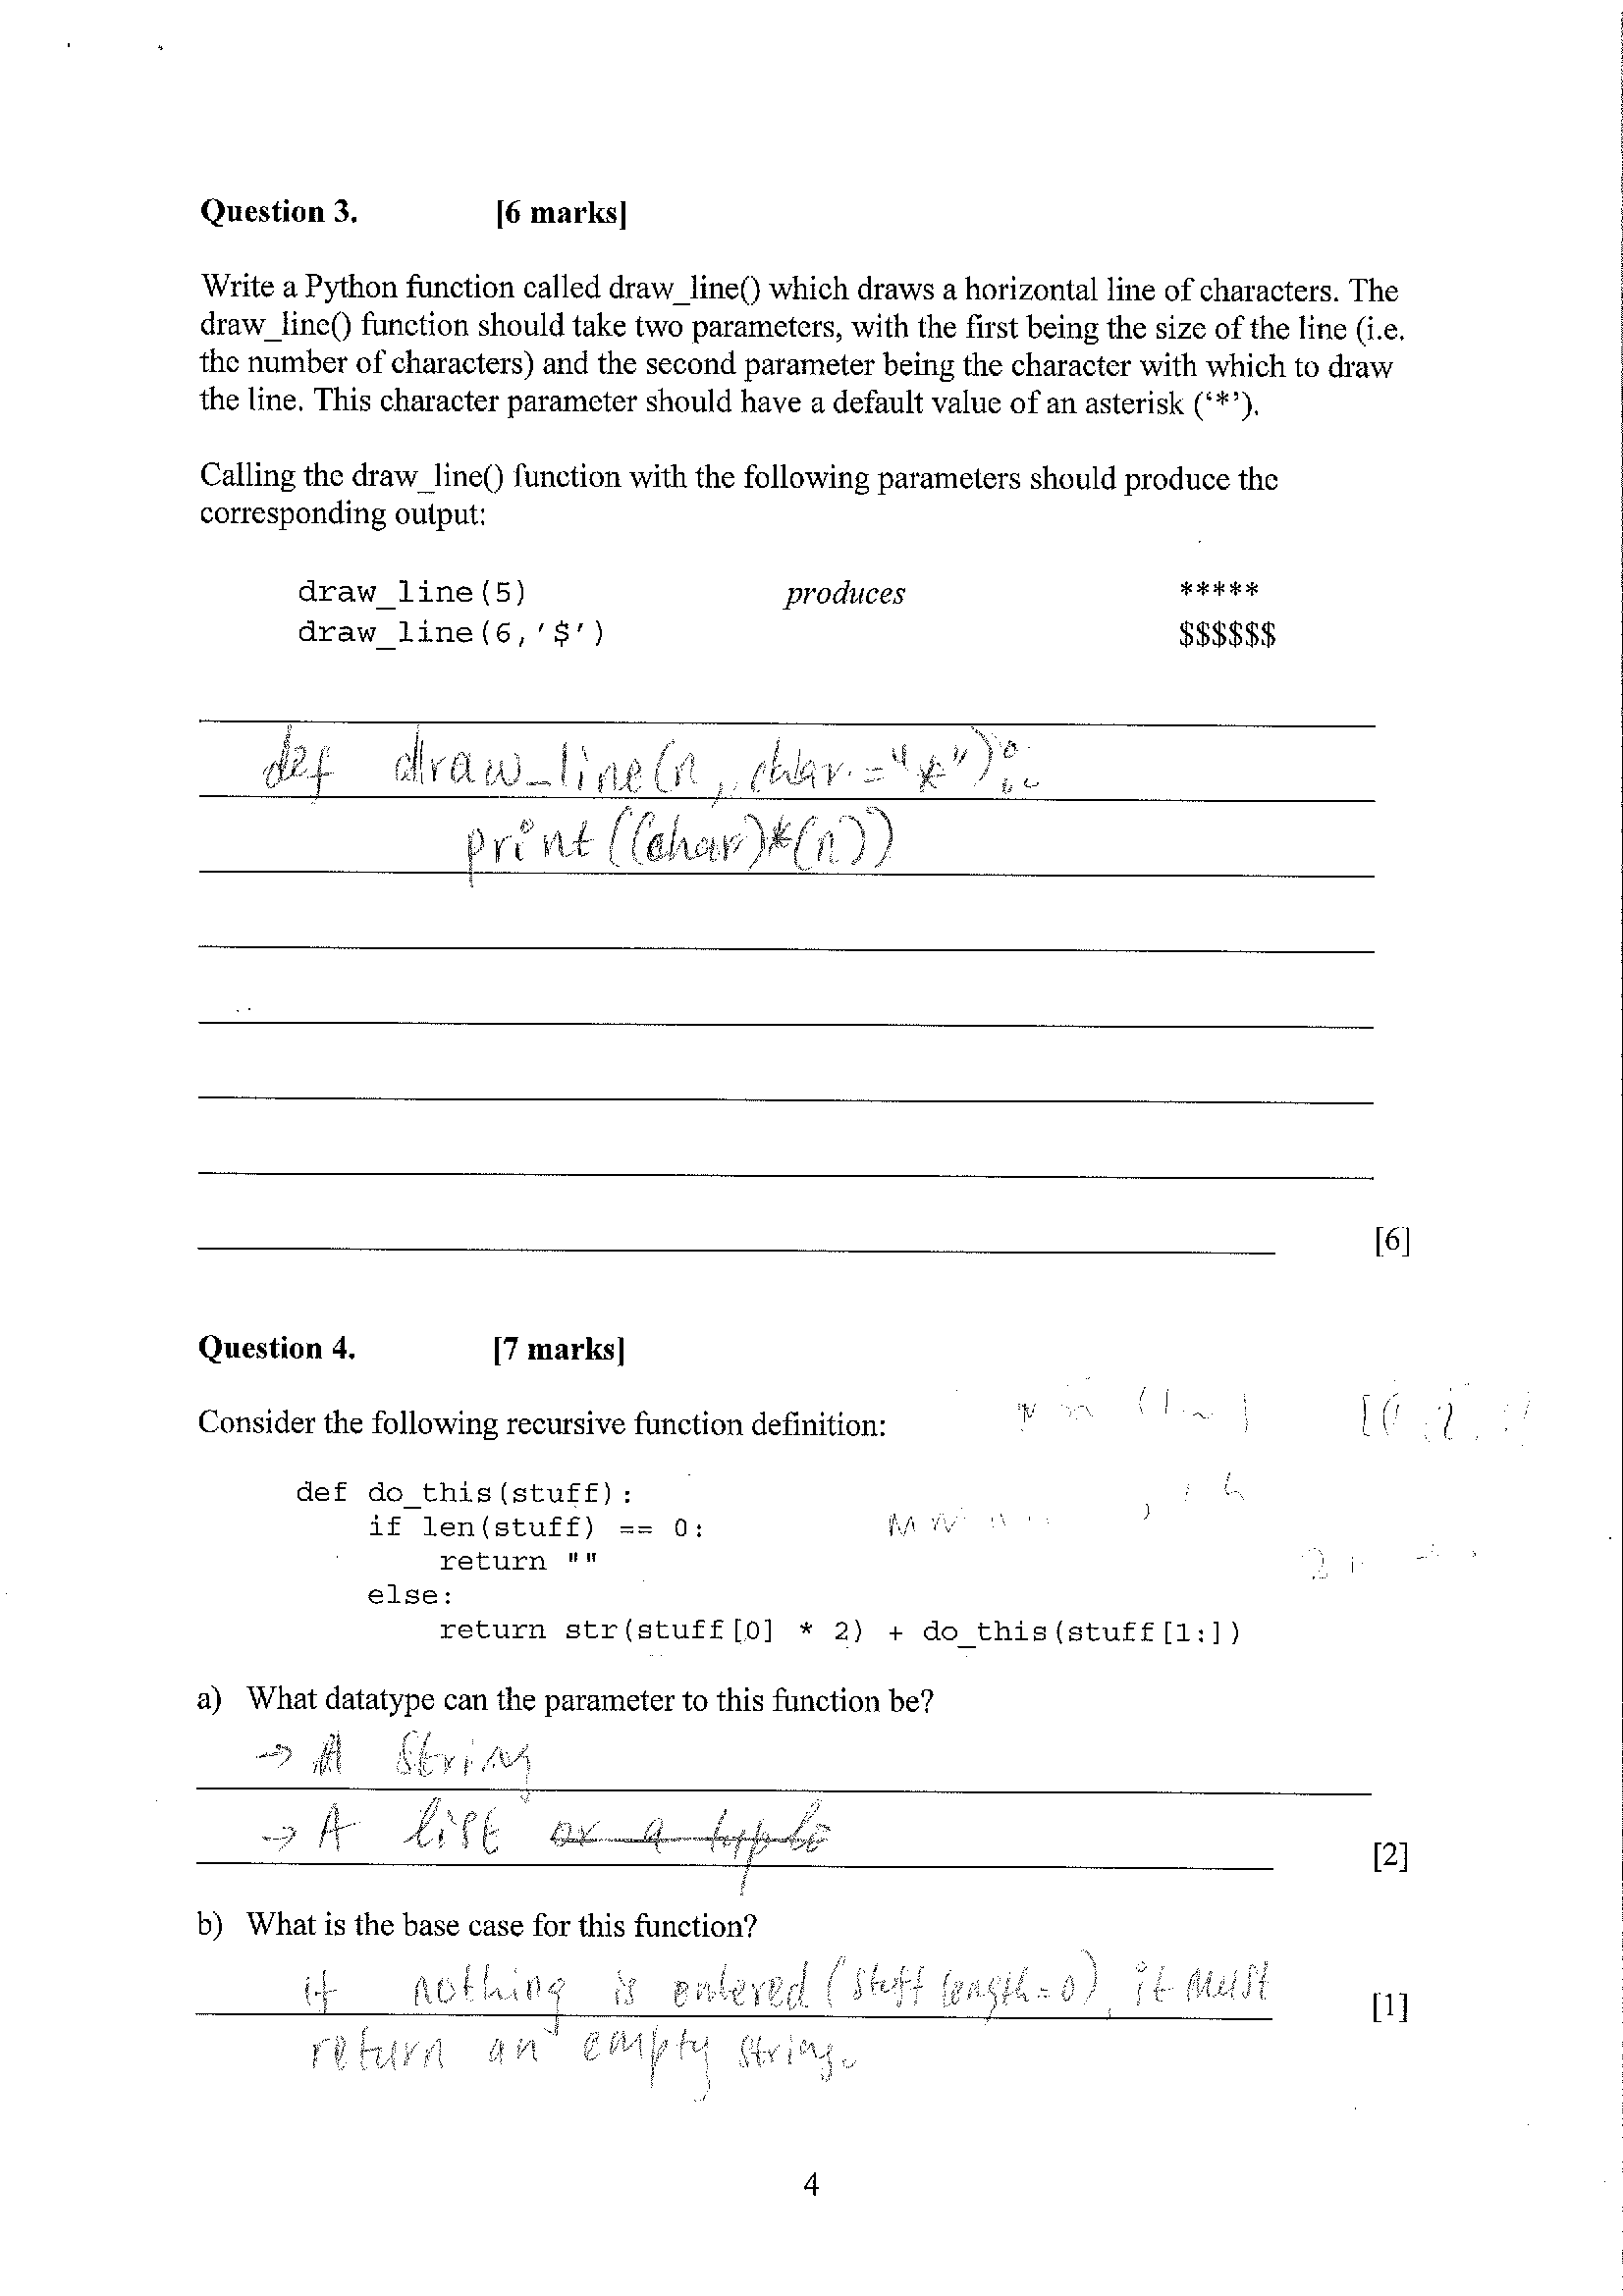 Question 3. [6 marks]
Write a Python function called draw_line() which draws a horizontal line of characters. The
draw_line() function should take two parameters, with the first being the size of the line (i.e.
the number of characters) and the second parameter being the character with which to draw
the line. This character parameter should have a default value of an asterisk (‘*’).
Calling the draw_line() function with the following parameters should produce the
corresponding output:
draw_line(5) produces *****
draw_line(6,'$') $$$$$$
def draw_line(n, char="*"):
print((char)*(n))
[6]
Question 4. [7 marks]
Consider the following recursive function definition:
def do_this(stuff):
if len(stuff) == 0:
return ""
else:
return str(stuff[0] * 2) + do_this(stuff[1:])
a) What datatype can the parameter to this function be?
→ A String
→ A list or a tupple
[2]
b) What is the base case for this function?
if nothing is entered (stuff length=0), it must
[1]
return an empty string.
4